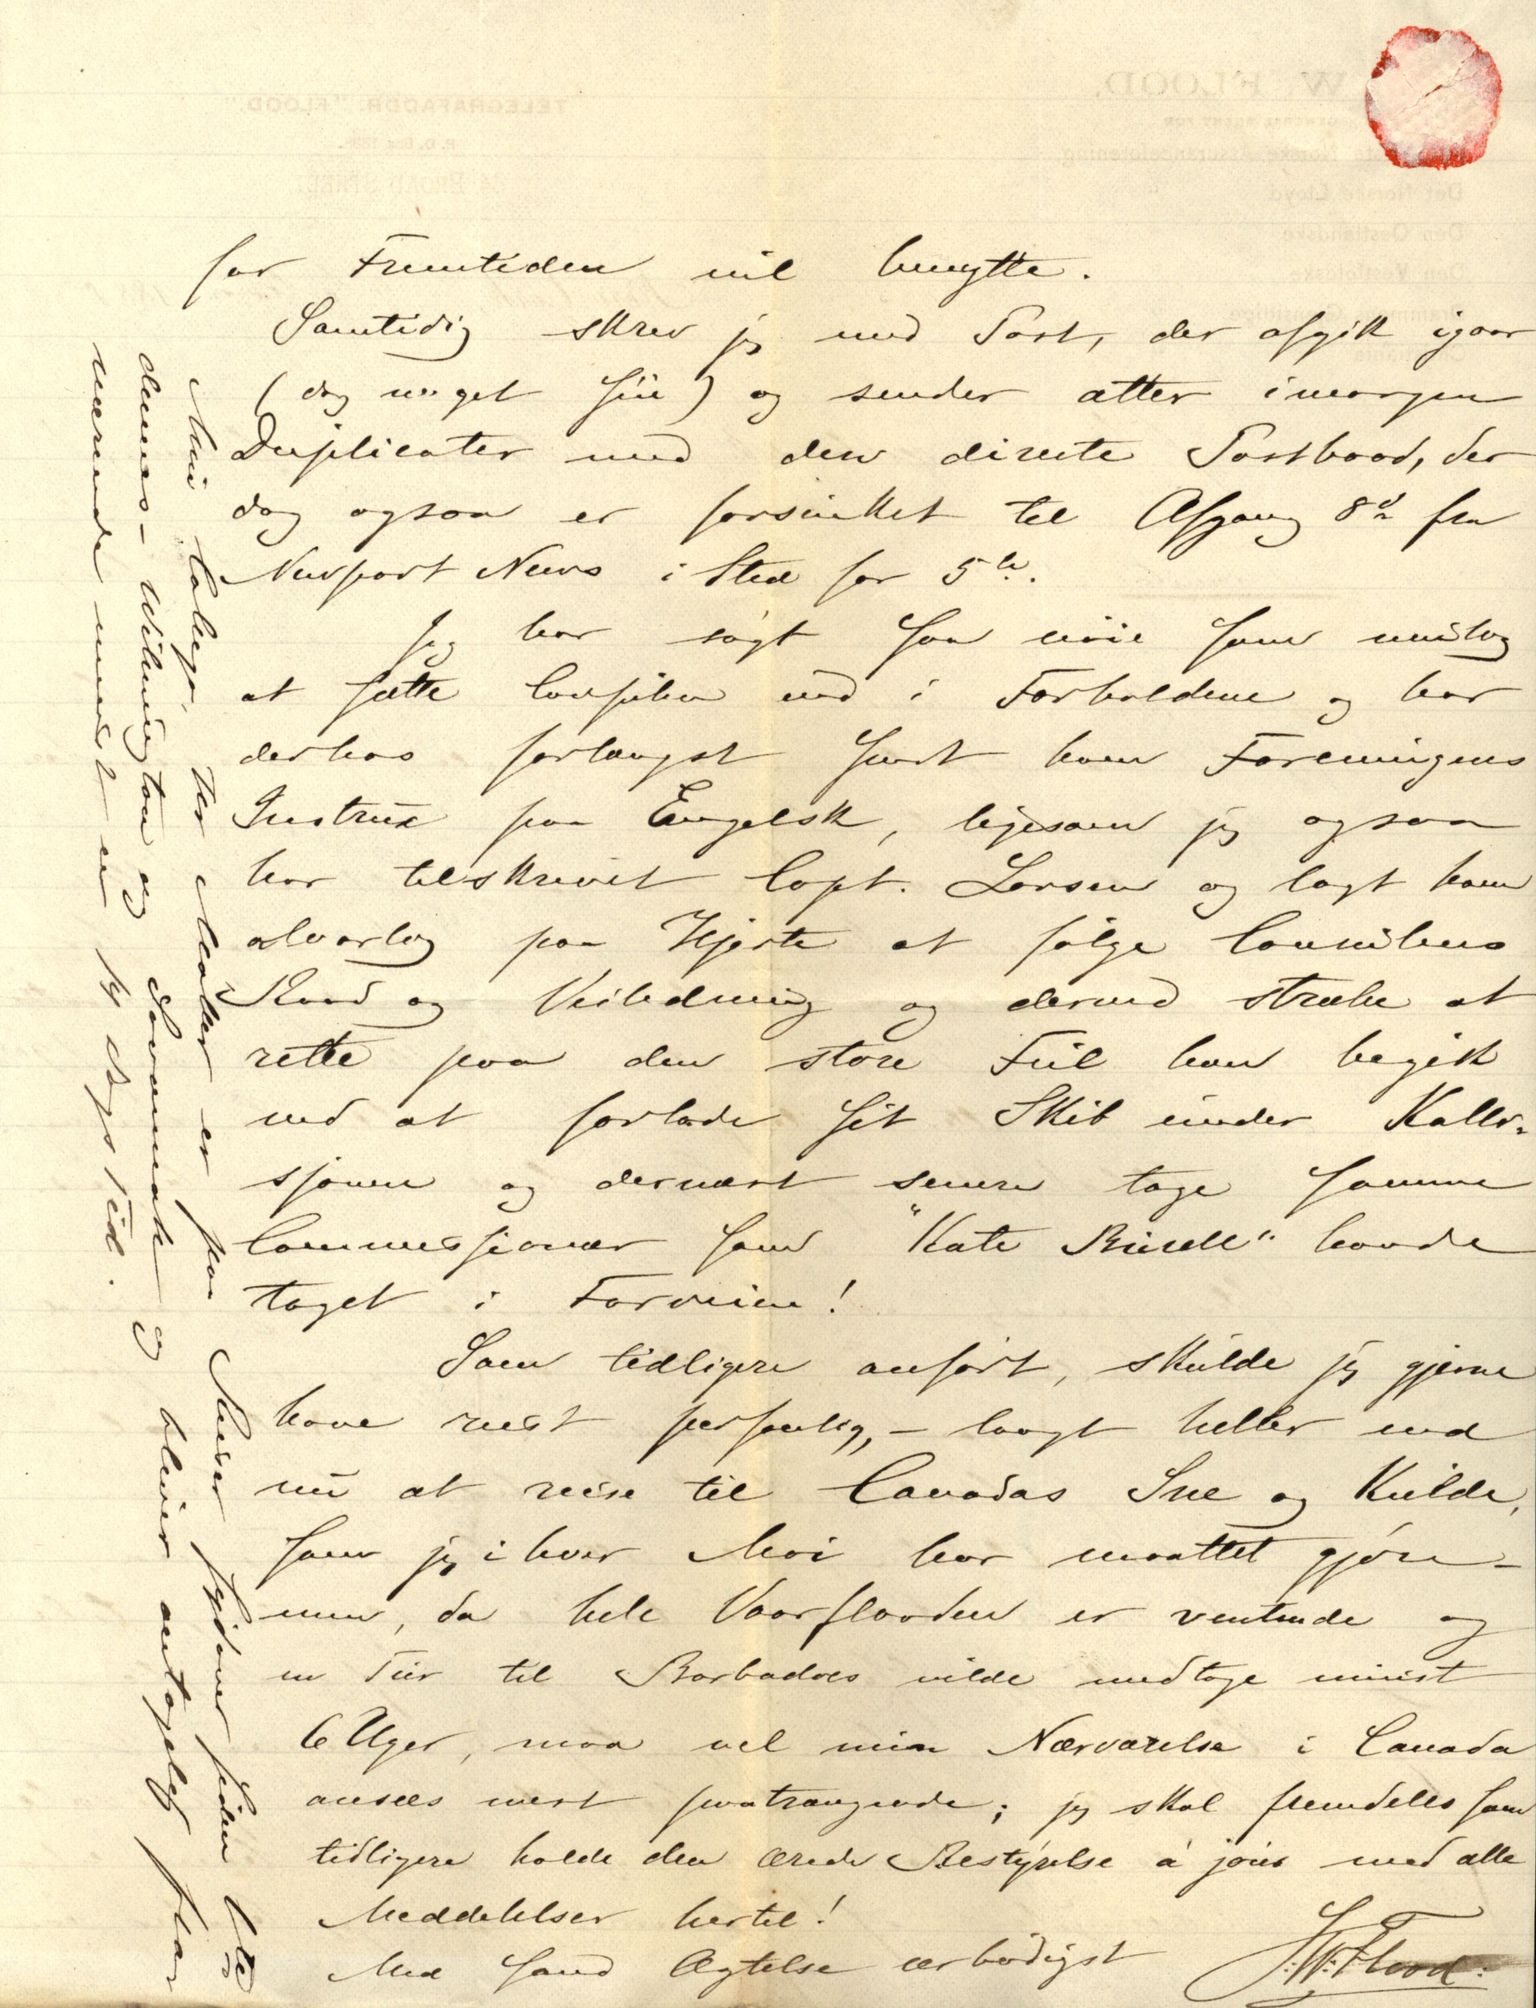 for Fremtiden vil benytte.
Samtidig skrev jeg med Post, der afgik igaar
(dog noget siie) og sender atter imorgen
Duplicater med den directe Postbaad, der
dog ogsaa er forsinket til Afgang 8de fra
Newport News i Sted for 5te.
Jeg har søgt saa nøie som muligt
at sætte Consulen ind i Forholdene og har
derhos forlængst sendt ham Foreningens
Instrux paa Engelsk, ligesom jeg ogsaa
har tilskrevet Capt. Larsen og lagt ham
alvorlig paa Hjerte at følge Consulens
Raad og Veiledning og dermed stræbe at
rette paa den store Feil han begik
ved at forlade sit Skib under Kalle-
sjonen og dernæst senere tage samme
Commissionær som "Kate Burell" havde
taget i Forveien!
Som tidligere anført, skulde jeg gjerne
have reist personlig, – langt heller end
nu at reise til Canadas Sne og Kulde,
som jeg ihver har maattet gjøre –
men, da hele Vaarflaaden er ventende og
en Tur til Barbadoes vilde medtage mindst
6 Uger, maa vel min Nærværelse i Canada
ansees mest paatrængende; jeg skal fremdeles som
tidligere holde den ærede Bestyrelse á jour med alle
Meddelelser hertil!
Med sand Agtelse ærbødigst
J. W. Flood.
Min Collega, Hr er paa Reiser sydover siden
dennes – Wilmington og Savannah og bliver antagelig fra-
værende mindst en 14 Dages Tid.
W. FLOOD.
GENERAL AGENT FOR
Norske Assuranceforening
Det Norske Lloyd
Den Oestlandske
TELEGRAFADDR. "FLOOD."